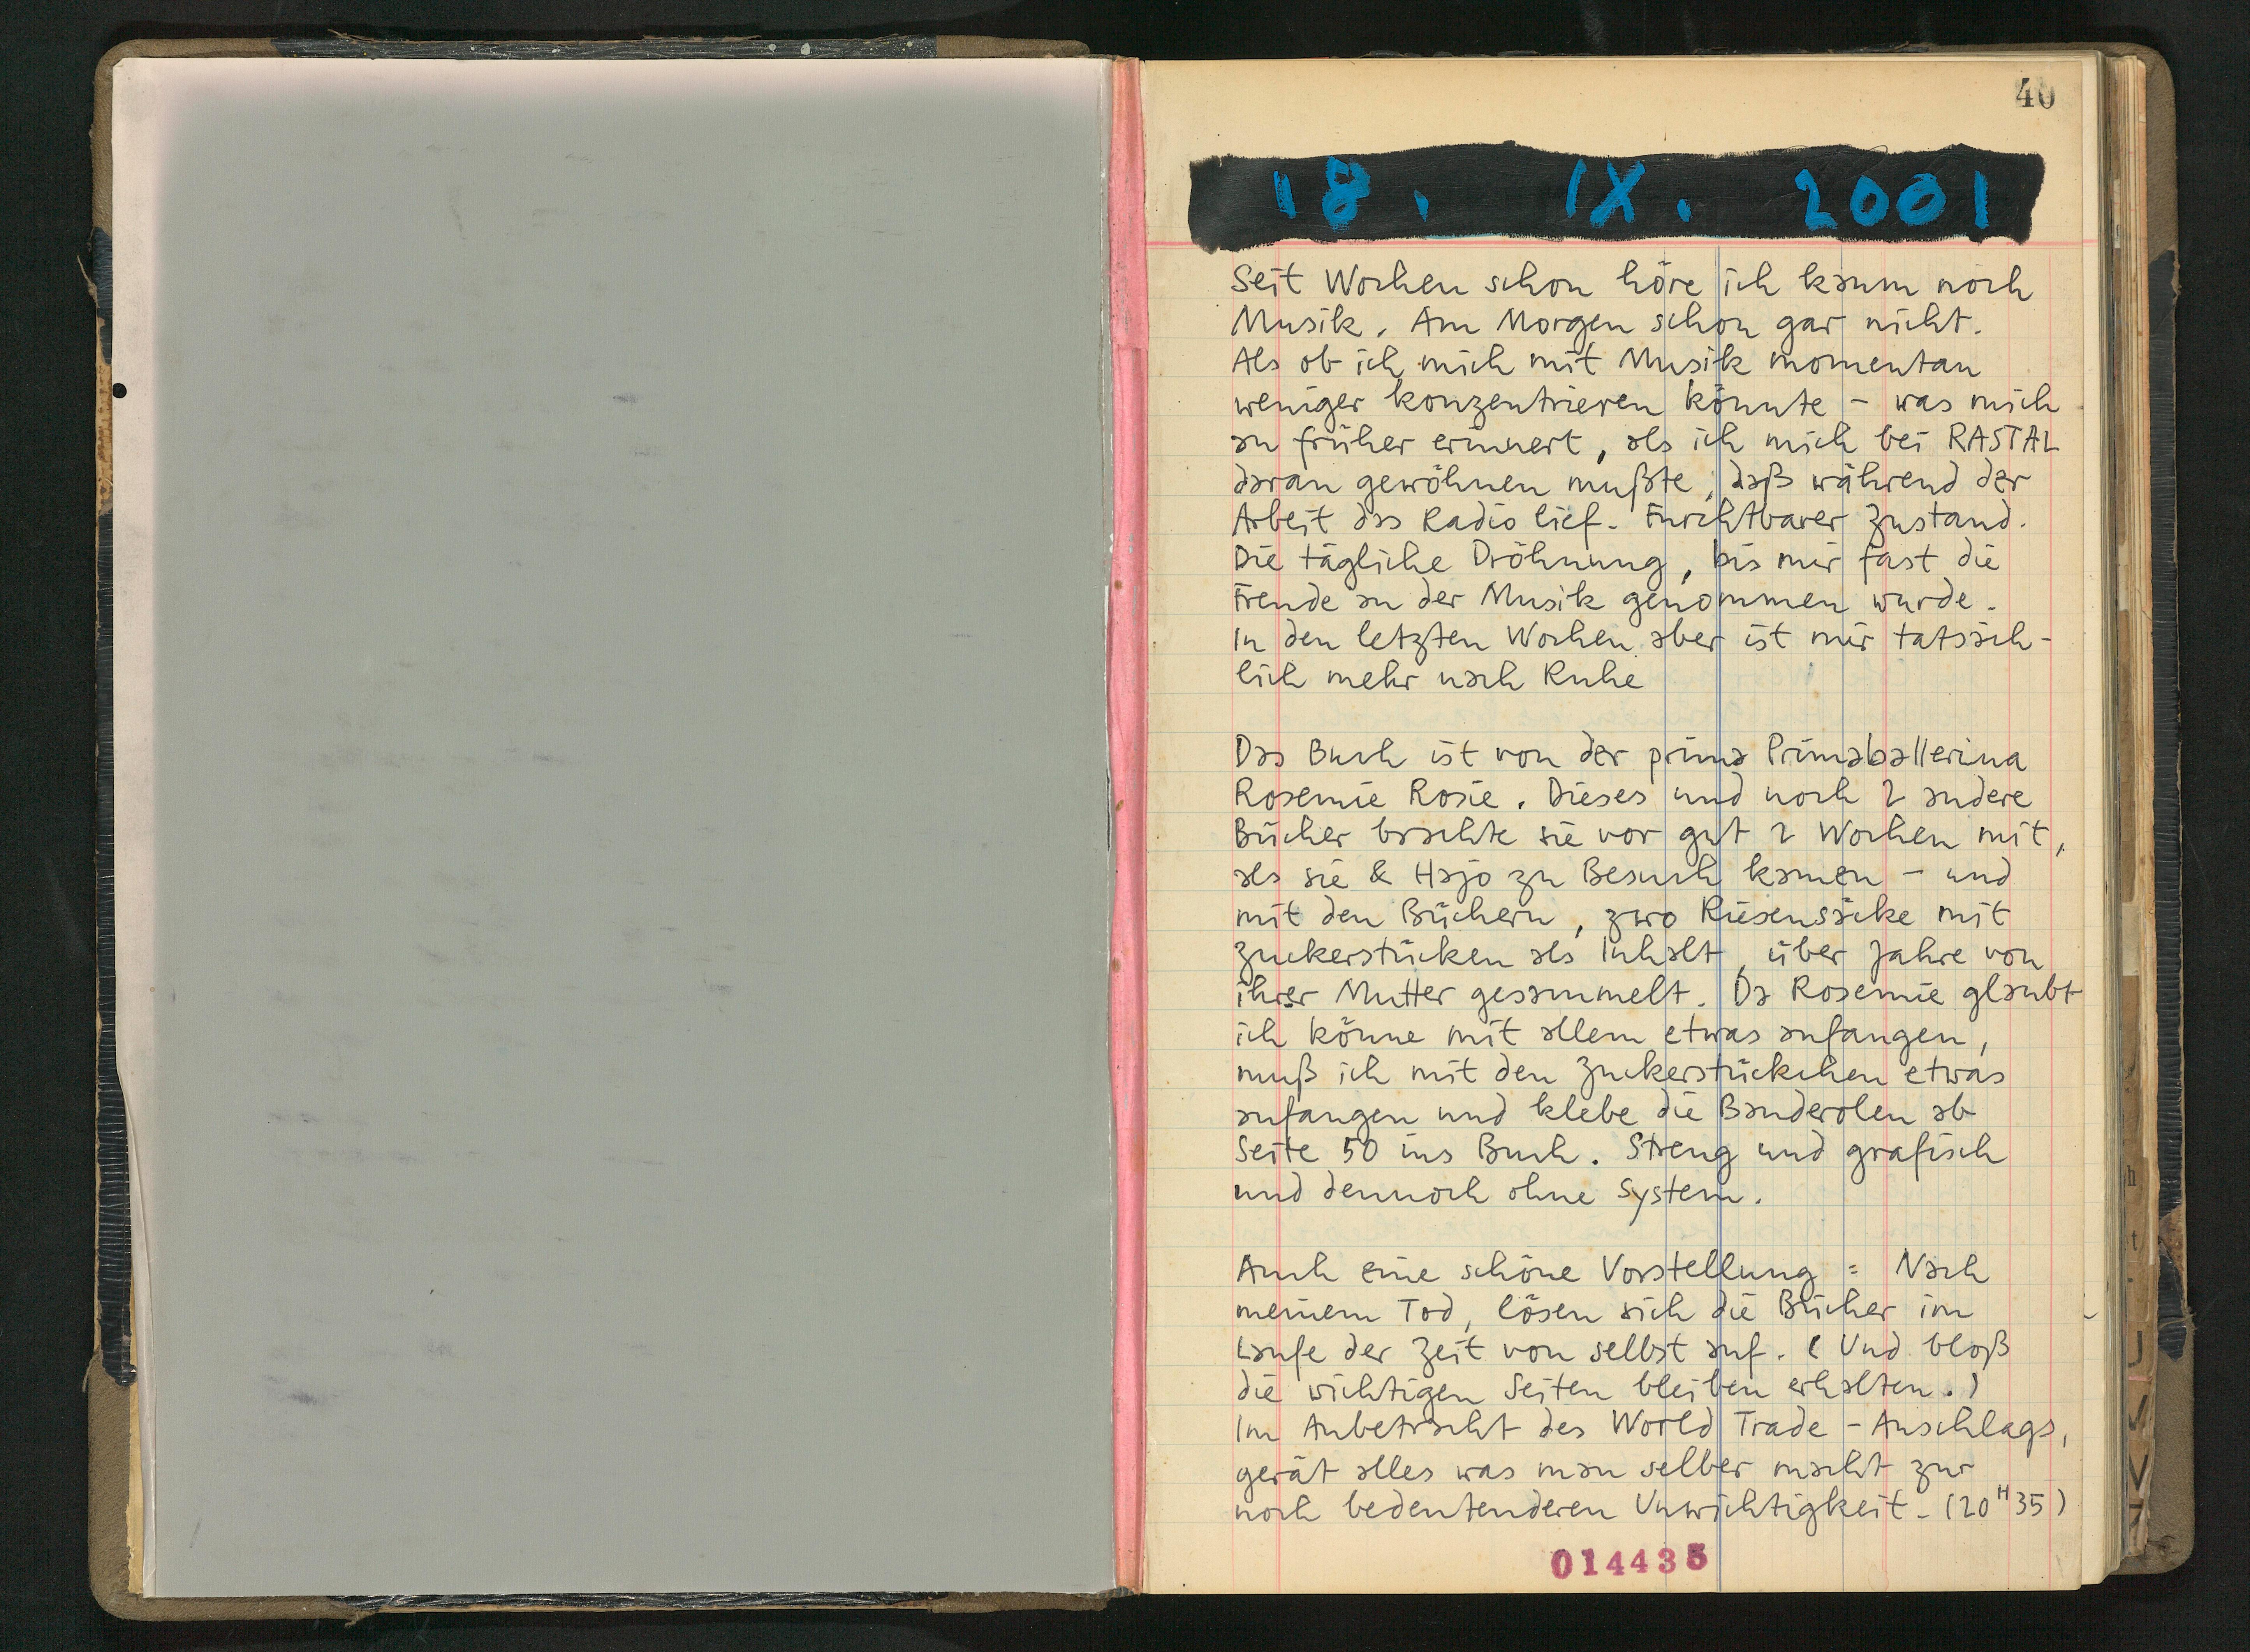 40
18. IX. 2001
Seit Wochen schon höre ich kaum noch
Musik. Am Morgen schon gar nicht.
Als ob ich mich mit Musik momentan
weniger konzentrieren könnte – was mich
an früher erinnert, als ich mich bei RASTAL
daran gewöhnen mußte, daß während der
Arbeit das Radio lief. Furchtbarer Zustand.
Die tägliche Dröhnung, bis mir fast die
Freude an der Musik genommen wurde.
In den letzten Wochen aber ist mir tatsäch-
lich mehr nach Ruhe
Das Buch ist von der prima Primaballerina
Rosemie Rosie. Dieses und noch 2 andere
Bücher brachte sie vor gut 2 Wochen mit,
als sie & Hajo zu Besuch kamen – und
mit den Büchern, zwo Riesensäcke mit
Zuckerstücken als Inhalt, über Jahre von
ihrer Mutter gesammelt. Da Rosemie glaubt
ich könne mit allem etwas anfangen,
muß ich mit den Zuckerstückchen etwas
anfangen und klebe die Banderolen ab
Seite 50 ins Buch. Streng und grafisch
und dennoch ohne System.
Auch eine schöne Vorstellung = Nach
meinem Tod, lösen sich die Bücher im
Laufe der Zeit von selbst auf. (Und bloß
die wichtigen Seiten bleiben erhalten.)
Im Anbetracht des World Trade-Anschlags,
gerät alles was man selber macht zur
noch bedeutenderen Unwichtigkeit. (20 H 35)
014435